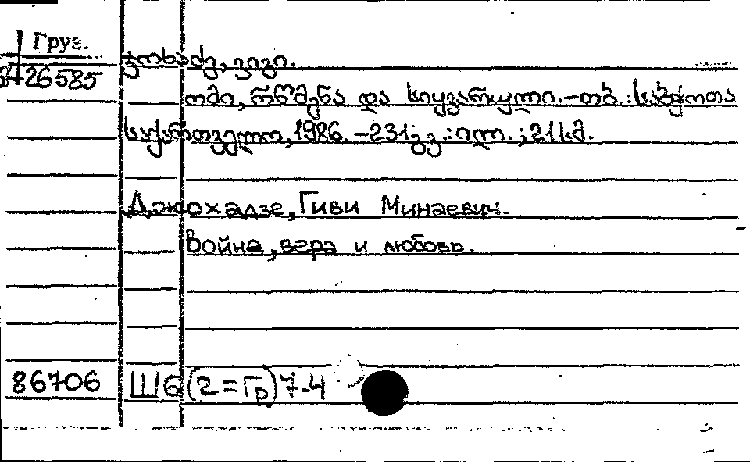 Груз.
26585
ჯოხაძე, გივი.
ომი, რწმენა და სიყვარული. - თბ. : საბჭოთა
საქართველო, 1986. - 231 გვ. : ილ. ; 21 სმ.
Джохадзе, Гиви Минаевич.
Война, вера и любовь.
86706 Ш6(2=Гр)7-4